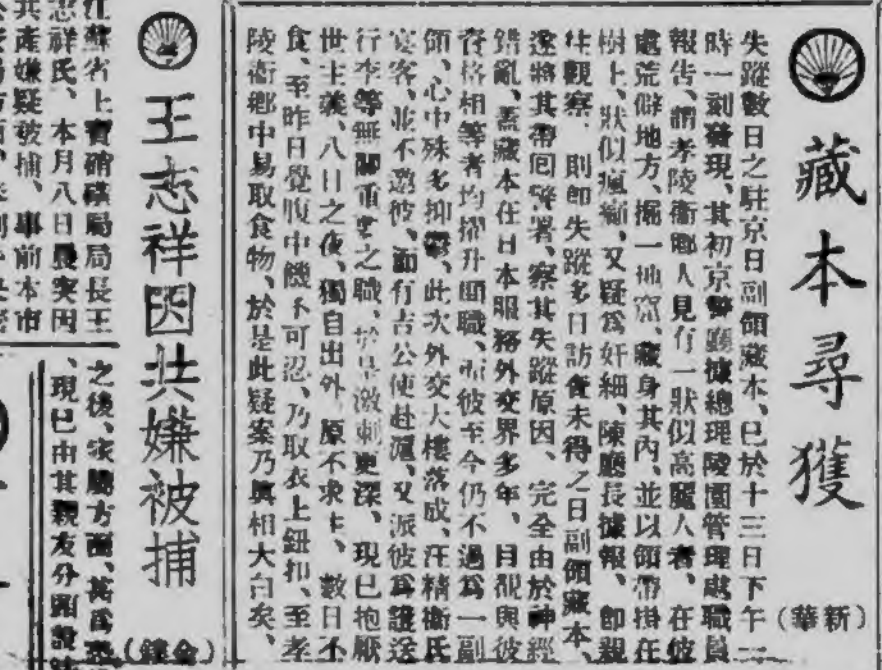 藏本尋獲
（新華）
失蹤數日之駐京日副領藏本、已於十三日下午一
時一刻發現、其初京警廳據總理陵園管理處職員
報告、謂孝陵衛鄉人見有一狀似高麗人者、在彼
處荒僻地方、掘一地窟、藏身其內、並以領帶掛在
樹上、狀似瘋癲、又疑為奸細、陳廳長據報、即親
往觀察、則即失蹤多日訪查未得之日副領藏本、
遂將其帶回警署、察其失蹤原因、完全由於神經
錯亂、蓋藏本在日本服務外交界多年、目覩與彼
資格相等者均擢升顯職、而彼至今仍不過爲一副
領、心中殊多抑鬱、此次外交大樓落成、汪精衛氏
宴客、並不邀彼、而有吉公使赴滬、又派彼爲護送
行李等無關重要之職、於是激刺更深、現已抱厭
世主義、八日之夜、獨自出外、原不求生、數日不
食、至昨日覺腹中饑不可忍、乃取衣上鈕扣、至孝
陵衛鄉中易取食物、於是此疑案乃眞相大白矣、
王志祥因共嫌被捕
（金鐘）
江蘇省上寶硝磺局局長王
志祥氏、本月八日晨突因
共產嫌疑被捕、事前本市
之後、家屬方面、甚爲
、現已由其親友分頭設法